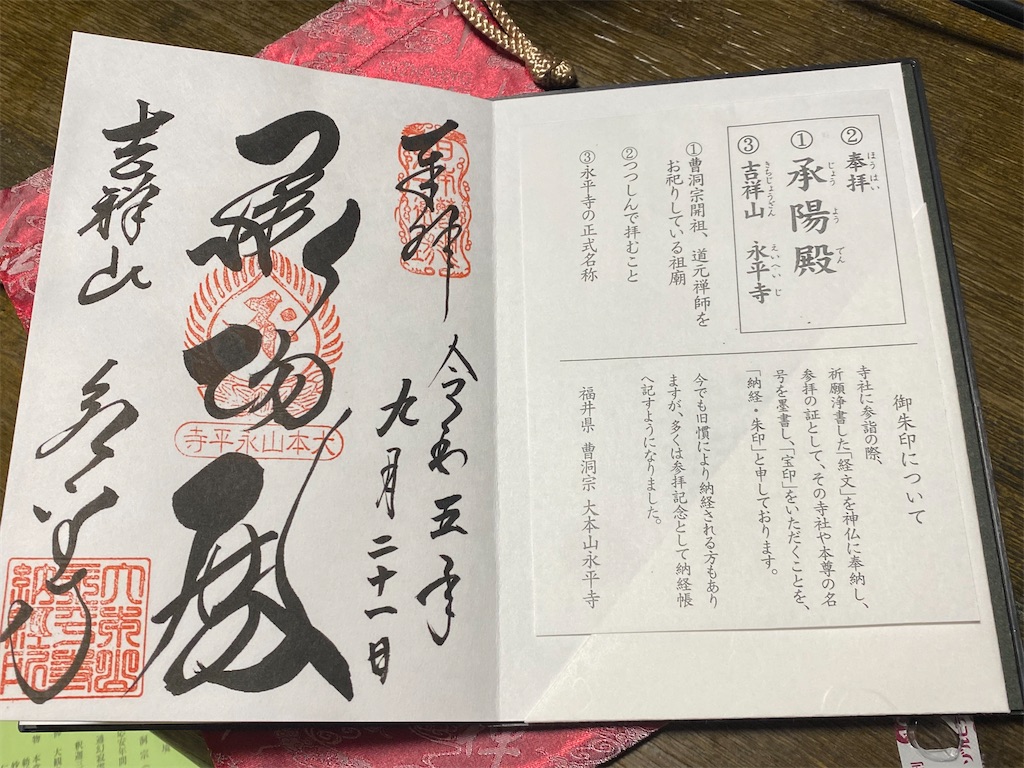 ②奉拝
ほうはい
①承陽殿
じょうようでん
③吉祥山　永平寺
きちじょうざん　えいへいじ
①曹洞宗開祖、道元禅師を
お祀りしている祖廟
②つつしんで拝むこと
③永平寺の正式名称
御朱印について
寺社に参詣の際、
祈願浄書した「経文」を神仏に奉納し、
参拝の証として、その寺社や本尊の名
号を墨書し、「宝印」をいただくことを、
「納経・朱印」と申しております。
今でも旧慣により納経される方もあり
ますが、多くは参拝記念として納経帳
へ記すようになりました。
福井県 曹洞宗 大本山永平寺
奉拝
令和五年
九月二十一日
承陽殿
大本山永平寺
吉祥山　永平寺